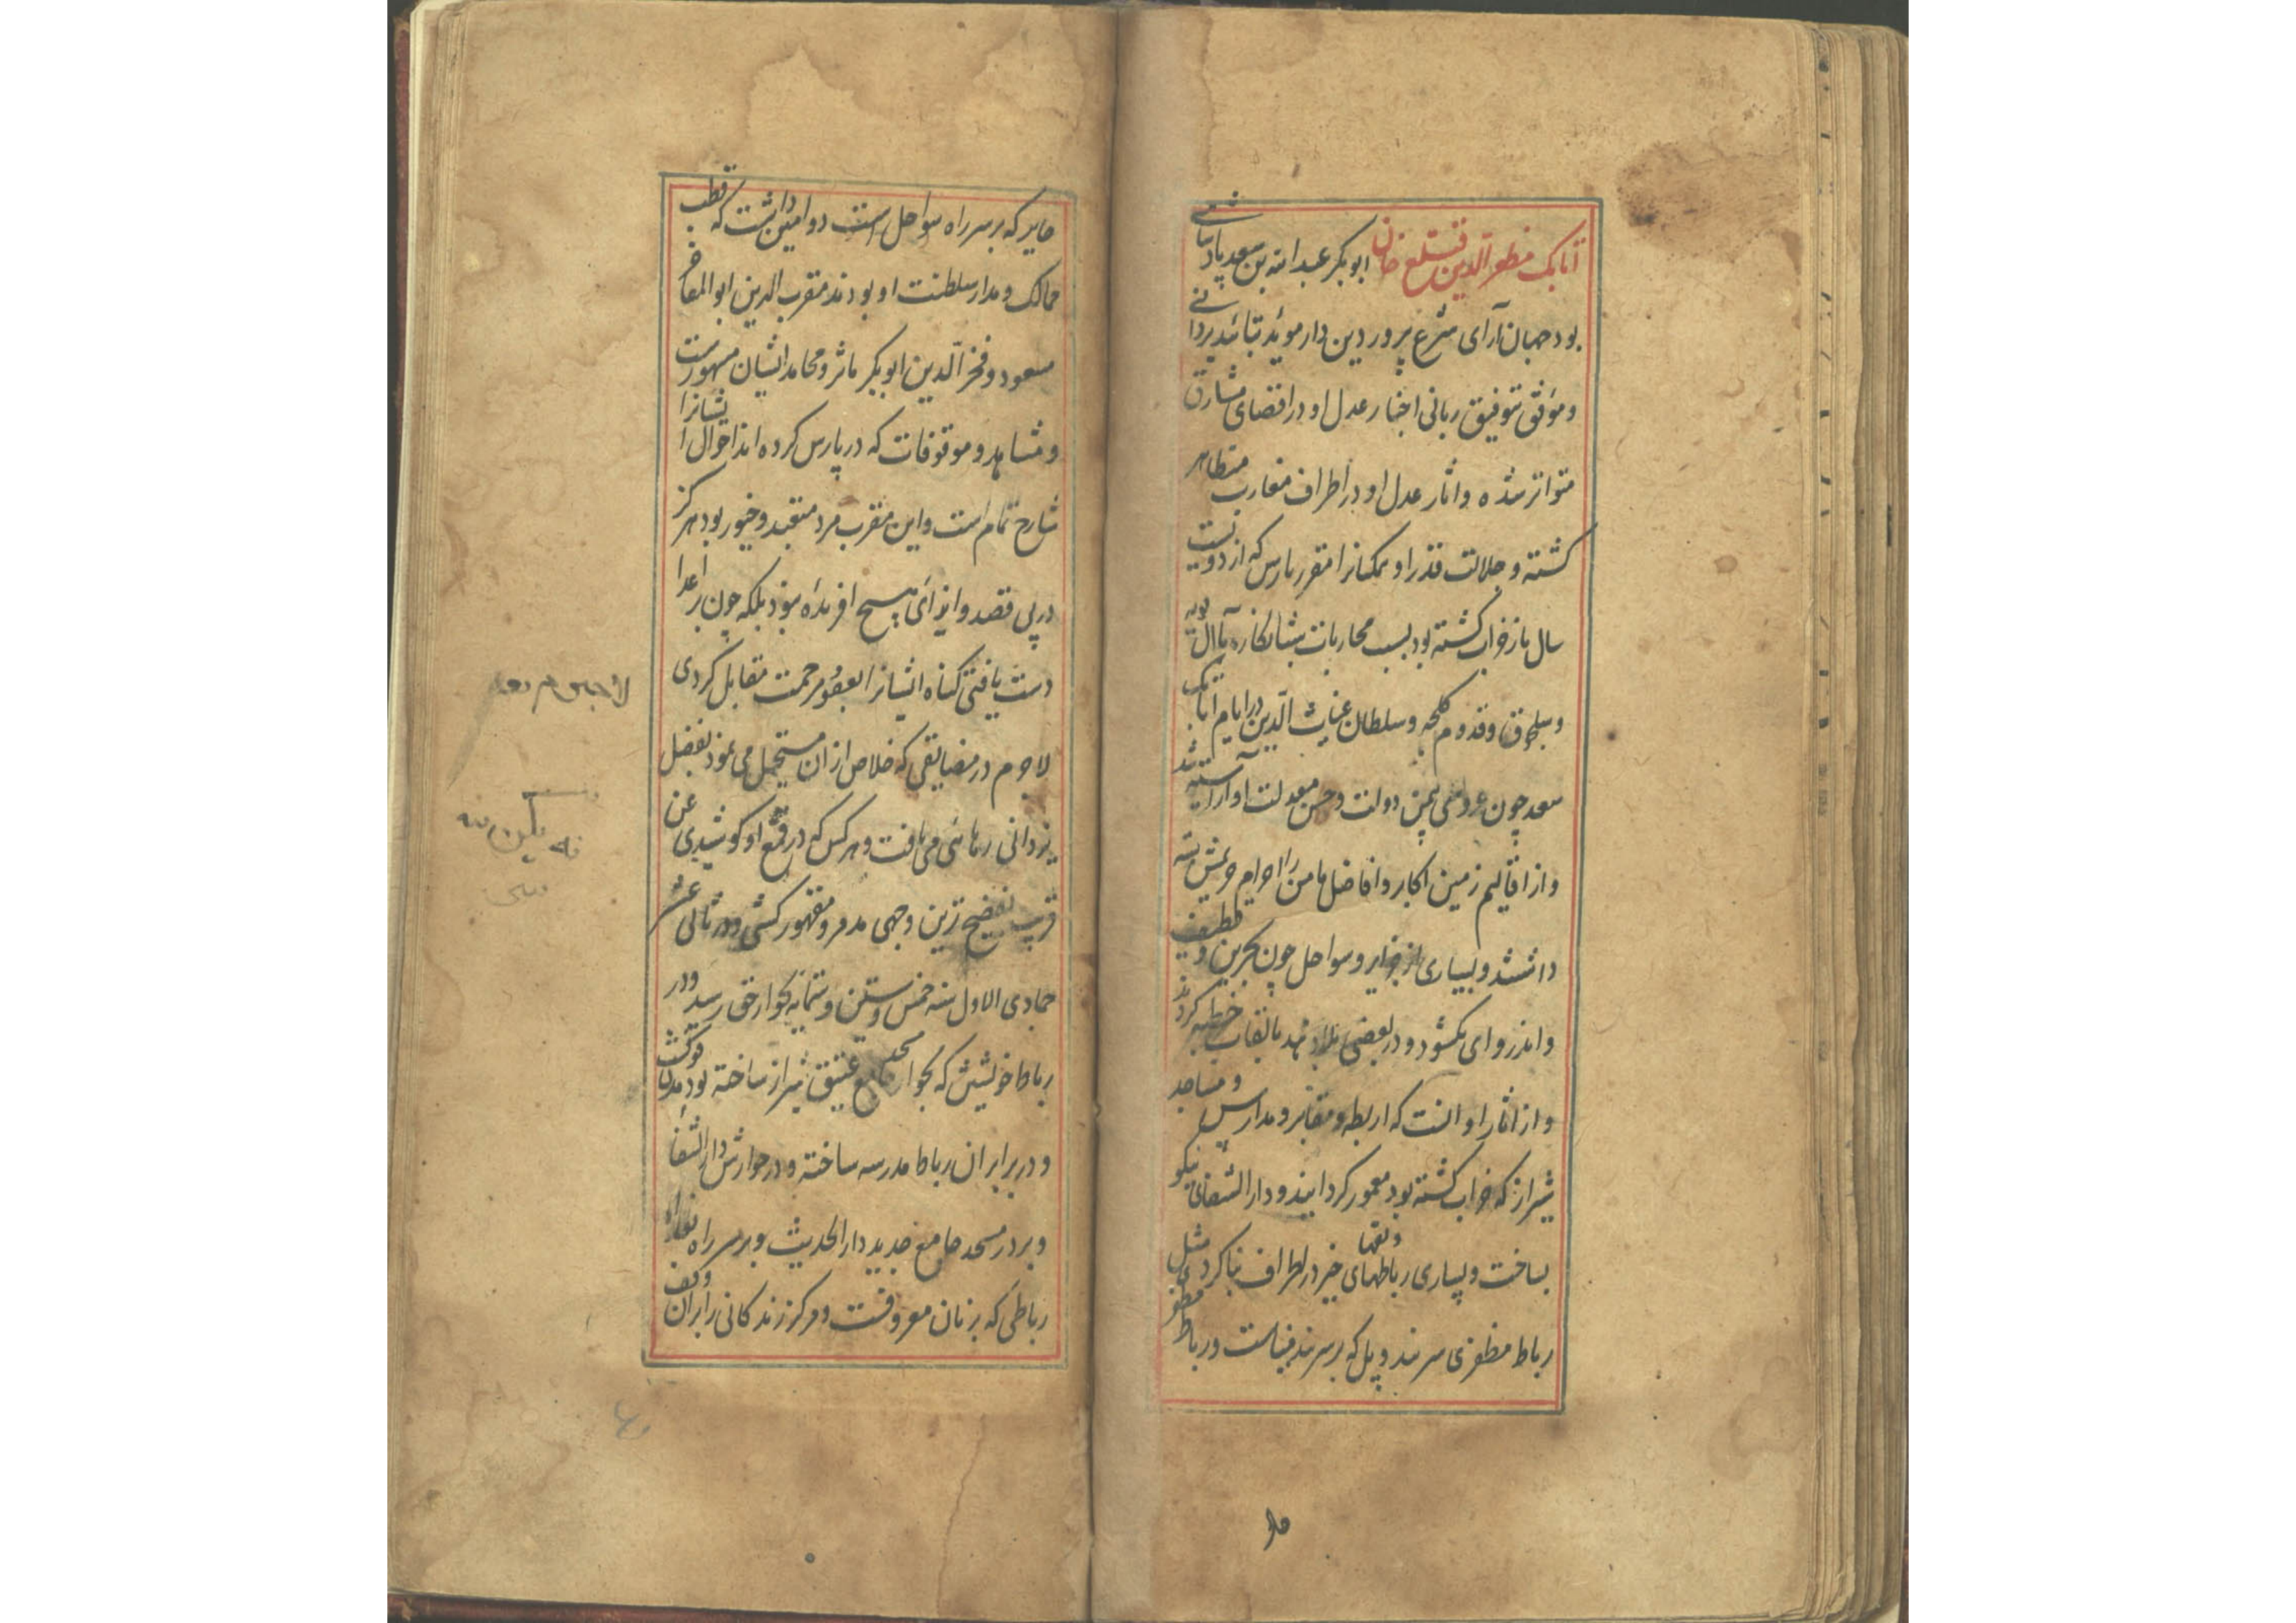 اتابک مظفر الدین قتلغ خان ابوبکر عبدالله بن سعد پادشاهی
بود جهان آرای شرع پرور دین دار موید بتائید یزدانی
و موفق بتوفیق ربانی اخبار عدل او در اقصای مشارق
متواتر شده و اثار عدل او در اطراف مغارب متظاهر
کشته و جلالت قدر او همکنانرا مقرر پارس که از دویست
سال باز خراب کشته بود بسبب محاربات شبانکاره باآل بویه
و سلجوق و قدوم کلجه و سلطان غیاث الدین در ایام اتابک
سعد چون عروسی بیمن دولت و حسن معدلت او آراسته شد
و از اقالیم زمین اکابر و افاضل مامن را احرام حریمش بسته
داشتند و بسیاری از جزایر و سواحل چون بحرین و قطیف
و اندر و ای بکشود و در بعضی بلاد هند بالقاب خطبه کردند
و از اثار او انست که اربطه و مقابر و مدارس و مساجد
شیراز که خراب کشته بود معمور کردانیند و دار الشفائی نیکو
بساخت و بسیاری رباطهای خیر در اطراف بنا کرد و بقها مثل
رباط مظفری سر بند و پل که بر سر بند و رباط مظفری
جابر که بر سر راه سواحل است دو امین داشت که قطب
ممالک و مدار سلطنت او بودند مقرب الدین ابوالمفاخر
مسعود و فخر الدین ابوبکر ماثر و محامد ایشان مشهورست
و مشاهد و موقوفات که در پارس کرده اند احوال ایشانرا
شارح تمام است و این مقرب مرد متعبد و خیور بود هرکز
در پی قصد و ایذای هیچ افریده نبود بلکه چون بر اعدا
دست یافتی کناه ایشانرا بعفو و مرحمت مقابل کردی
لاجرم در مضایقی که خلاص از ان مستحیل می نمود بفضل
یزدانی رهائی می یافت و هر کس که در قمع او کوشیدی عن
قریب بفضیح ترین وجهی مدمر و مقهور کشتی و در ثانی عشر
جمادی الاول سنه خمس و ستین و ستمایه بجوار حق رسید و در
رباط خویشش که بجوار مسجد جامع عتیق شیراز ساخته بود مدفونست
و در برابر ان رباط مدرسه ساخته و در جوارش دار الشفا
و بر در مسجد جامع جدید دار الحدیث و بر سر راه
رباطی که بزنان معروفست و مرکز زندکانی را بران وقف